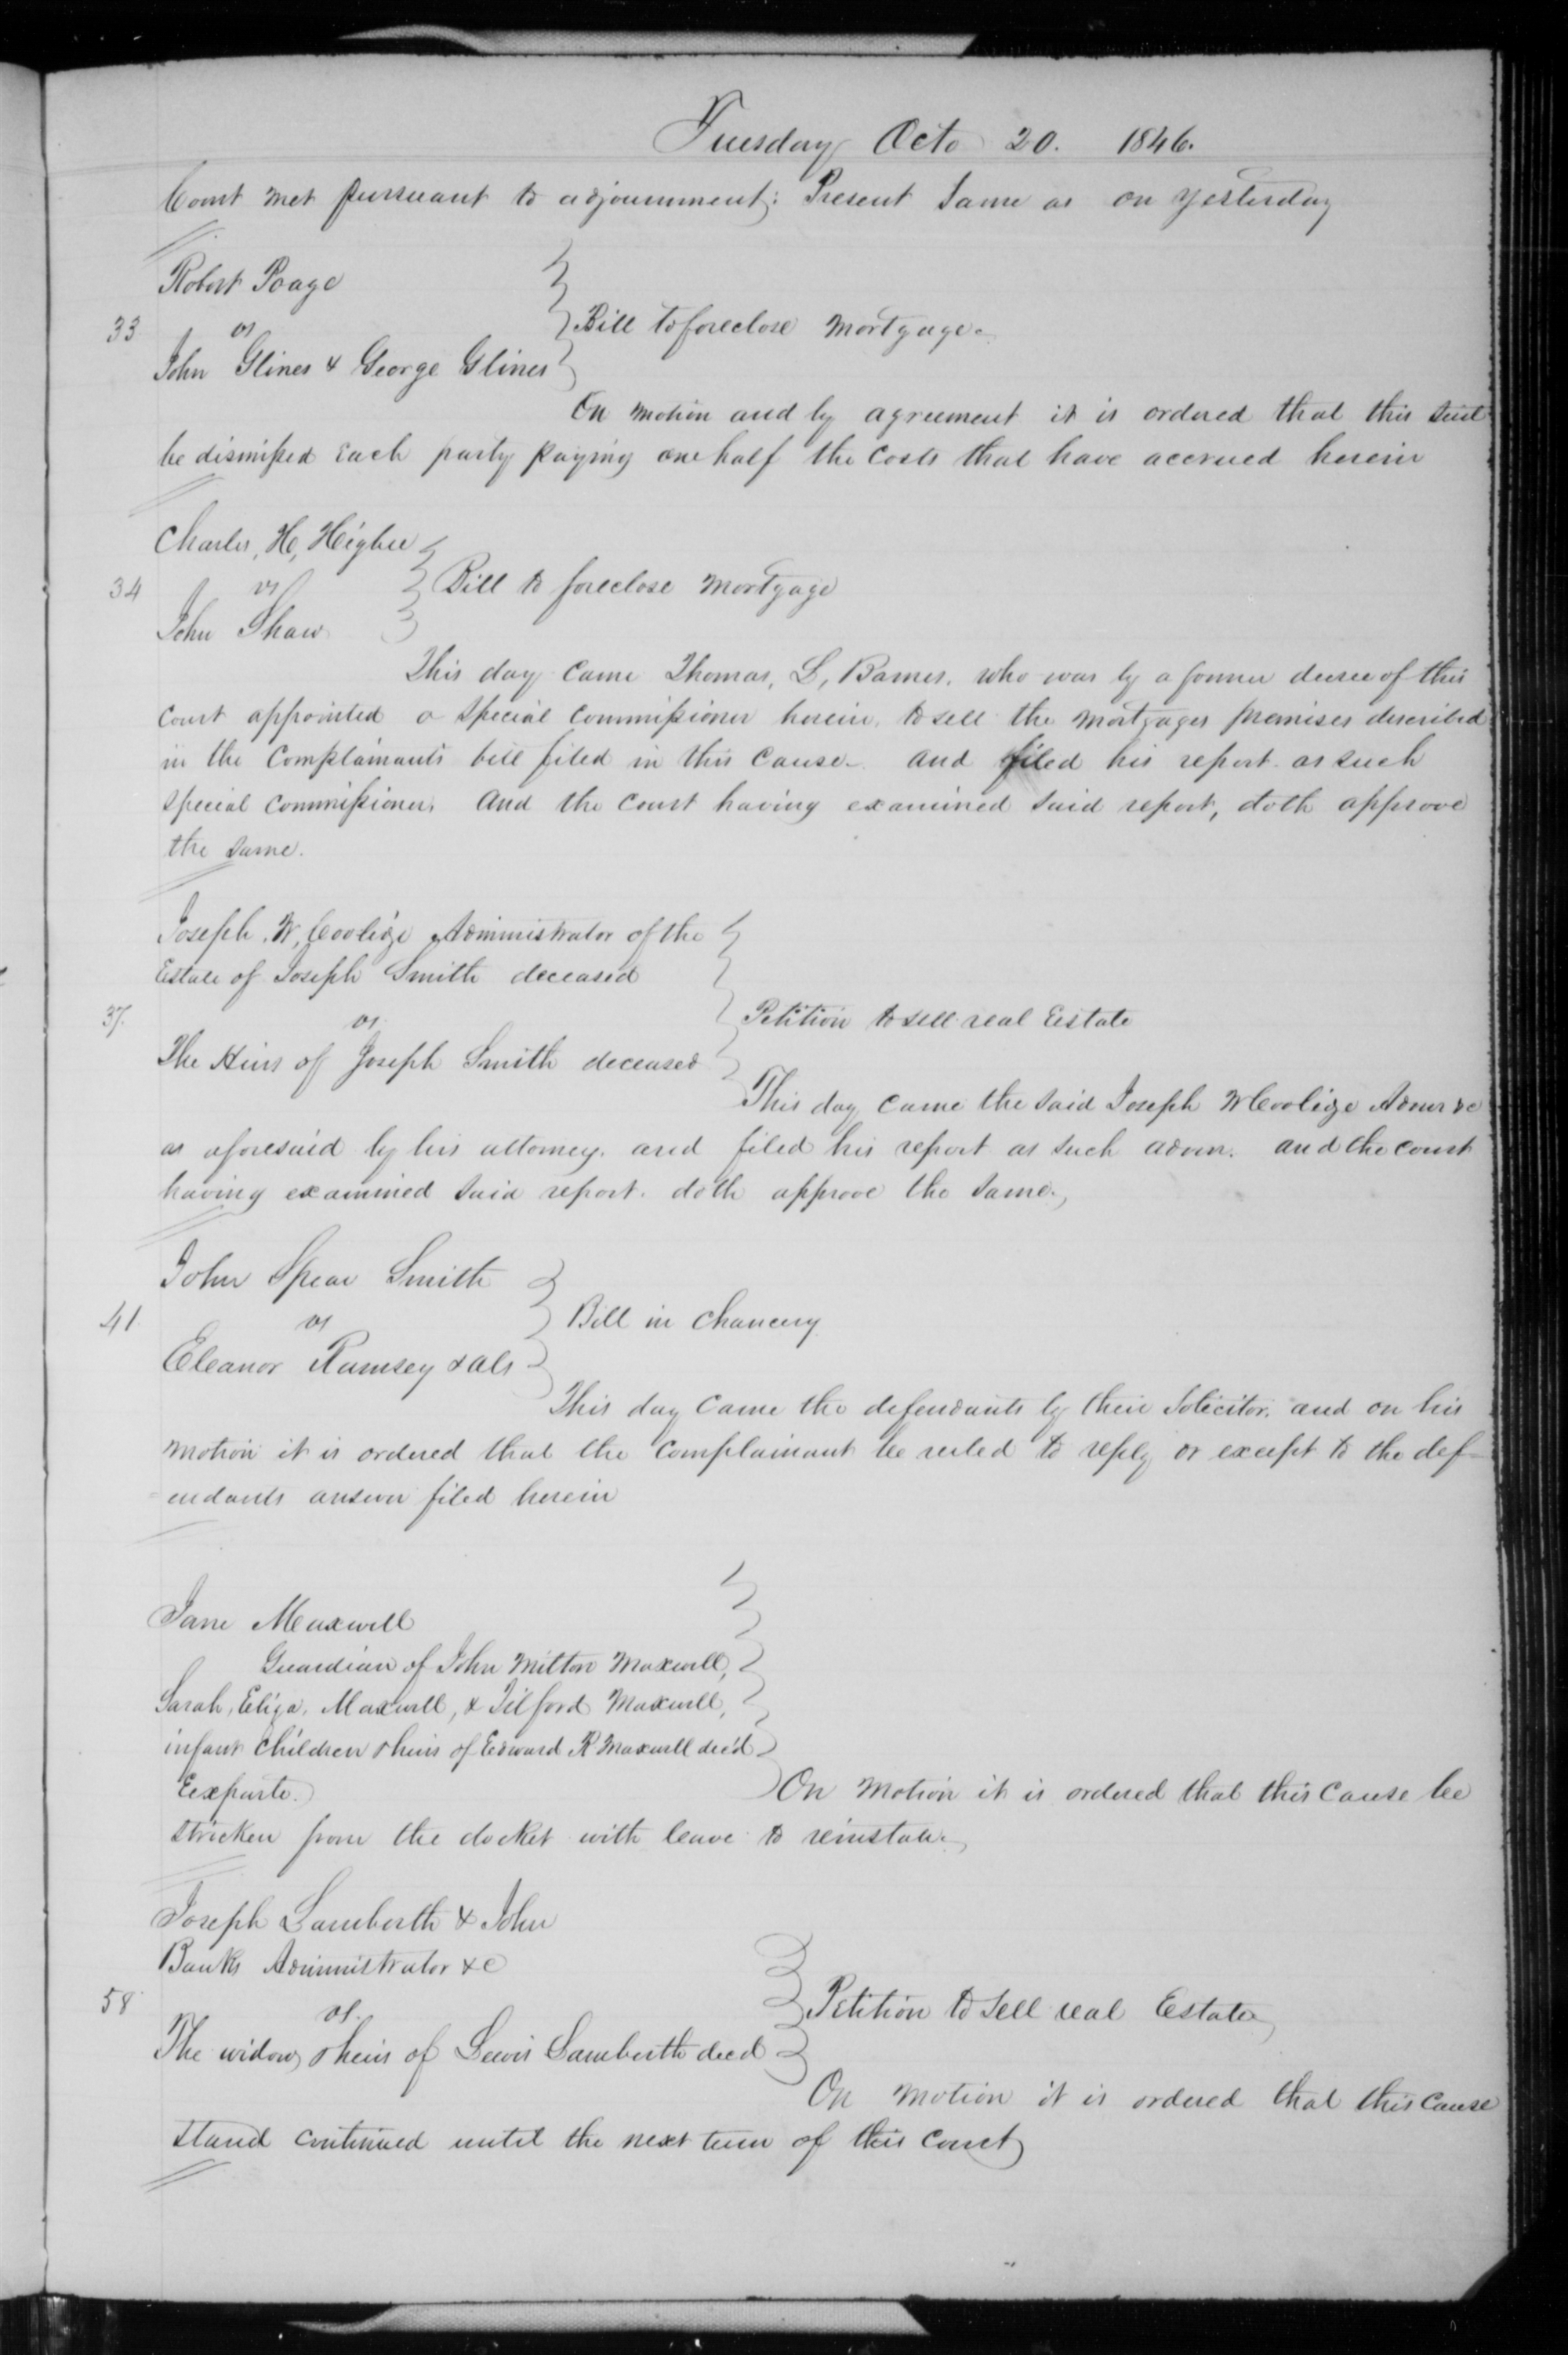 Tuesday Octo 20. 1846.
Court met pursuant to adjournment; Present Same as on yesterday
Robert Poage
33 vs
Bill to foreclose mortgage
John Glines & George Glines
On motion and by agreement it is ordered that this suit
be dismissed each party paying one half the costs that have accrued herein
Charles, H, Higbee
34 vs
Bill to foreclose mortgage
John Shaw
This day came Thomas, L, Barnes, who was by a former decree of this
court appointed a special commissioner herein, to sell the mortgages premises described
in the complainants bill filed in this cause. and filed his report as such
special commissioner, And the court having examined said report, doth approve
the same.
Joseph, W, Coolidge Administrator of the
Estate of Joseph Smith deceased
37. vs
Petition to sell real Estate
The Heirs of Joseph Smith deceased
This day came the said Joseph W Coolidge Admr &c
as aforesaid by his attorney, and filed his report as such admr. and the court
having examined said report. doth approve the same,
John Spear Smith
41 vs
Bill in chancery
Eleanor Ramsey & als
This day came the defendants by their Solicitor, and on his
motion it is ordered that the complainant be ruled to reply or except to the def-
-endants answer filed herein
Jane Maxwell
Guardian of John Milton Maxwell,
Sarah, Eliza, Maxwell, & Tilford Maxwell,
infant children & heirs of Edward R Maxwell dec'd
Eexparte.
On motion it is ordered that this cause be
stricken from the docket with leave to reinstate.
Joseph Lamberth & John
Banks Administrator &c
58 vs.
Petition to sell real Estate
The widow & heirs of Lewis Lamberth decd
On motion it is ordered that this cause
stand continued until the next term of this court